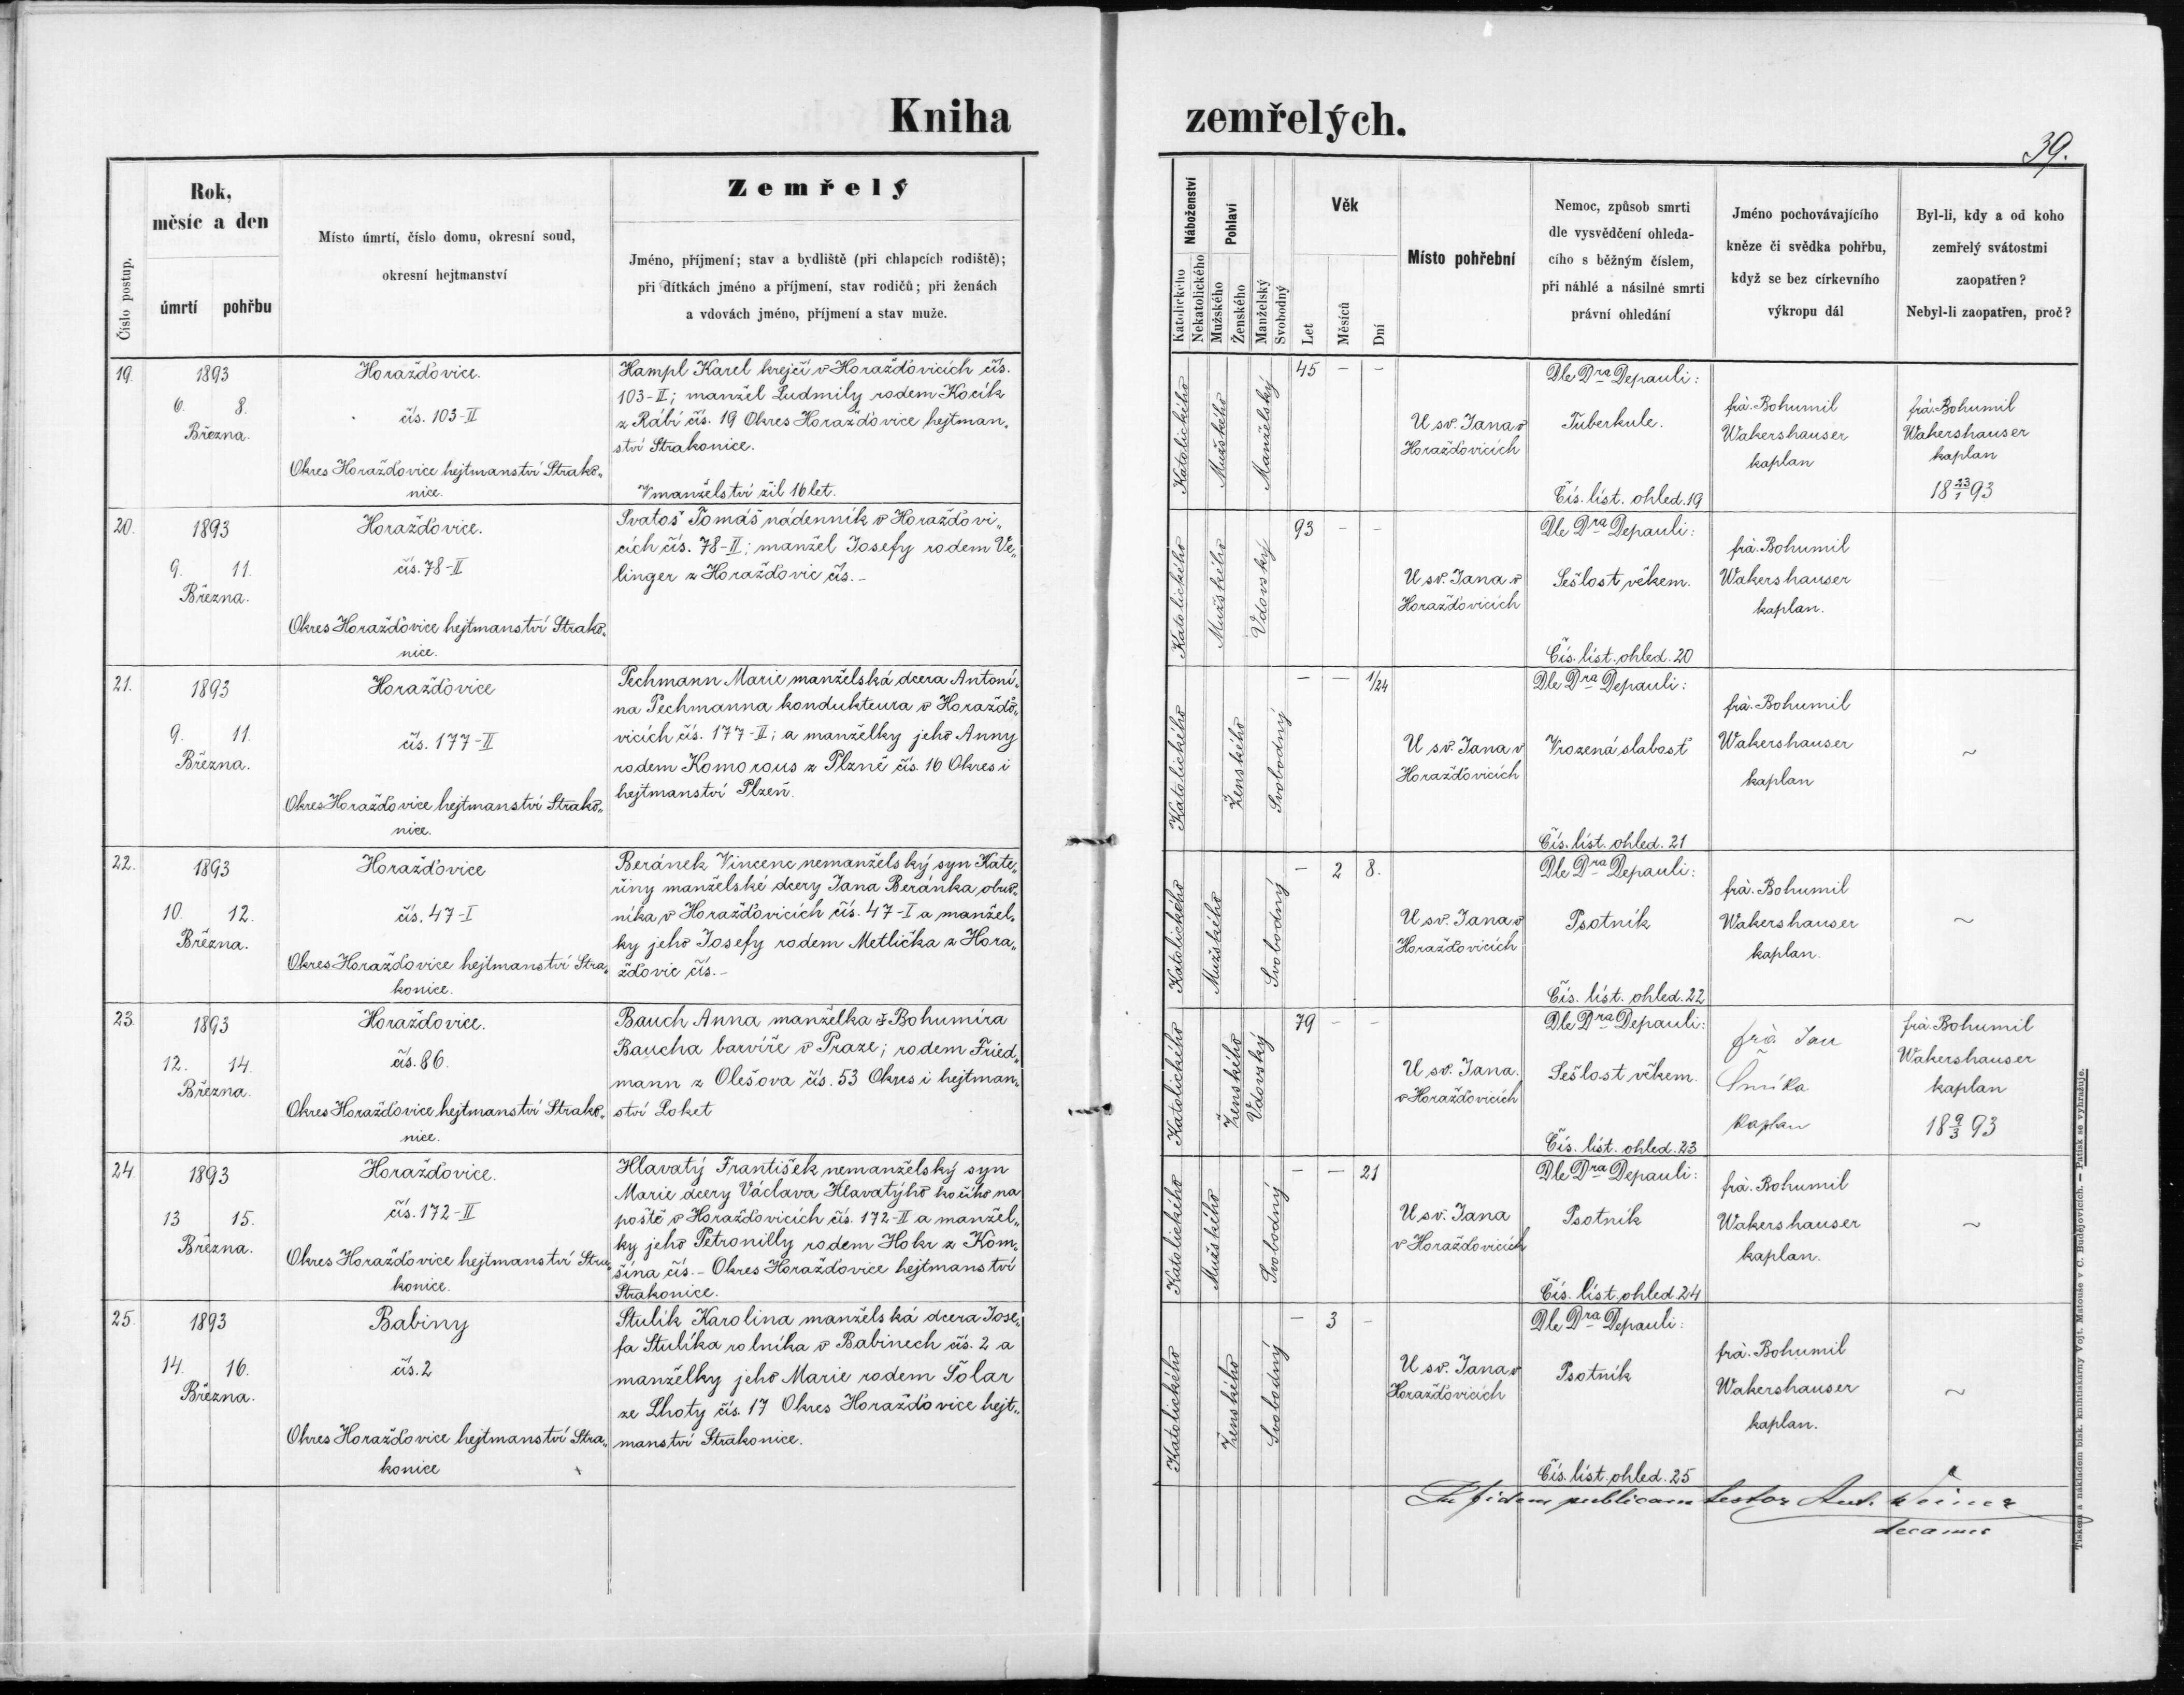 Kniha
zemřelých.
39.
Číslo postup.
Rok,
měsíc a den
úmrtí pohřbu
Místo úmrtí, číslo domu, okresní soud,
okresní hejtmanství
Zemřelý
Jméno, příjmení; stav a bydliště (při chlapcích rodiště);
při dítkách jméno a příjmení, stav rodičů; při ženách
a vdovách jméno, příjmení a stav muže.
Náboženství
Katolického
Nekatolického
Pohlaví
Mužského
Ženského
Manželský
Svobodný
Věk
Let
Měsíců
Dní
Místo pohřební
Nemoc, způsob smrti
dle vysvědčení ohleda-
cího s běžným číslem,
při náhlé a násilné smrti
právní ohledání
Jméno pochovávajícího
kněze či svědka pohřbu,
když se bez církevního
výkropu dál
Byl-li, kdy a od koho
zemřelý svátostmi
zaopatřen?
Nebyl-li zaopatřen, proč?
19.
1893
6. 8.
Března.
Horažďovice.
čís. 103-II
Okres Horažďovice hejtmanství Strako„
nice.
Hampl Karel krejčí v Horažďovicích čís.
103-II; manžel Ludmily rodem Kocík
z Rábí čís. 19 Okres Horažďovice hejtman„
ství Strakonice.
V manželství žil 16 let.
Katolického
Mužského
Manželský
45 - -
U sv. Jana v
Horažďovicích
Dle Dra Depauli:
Tuberkule.
Čís. líst. ohled. 19
frà. Bohumil
Wakershauser
kaplan
frà. Bohumil
Wakershauser
kaplan
18 23/1 93
20.
1893
9. 11.
Března.
Horažďovice.
čís. 78-II
Okres Horažďovice hejtmanství Strako„
nice.
Svatoš Tomáš nádenník v Horažďovi„
cích čís. 78-II; manžel Josefy rodem Ve„
linger z Horažďovic čís. -
Katolického
Mužského
Vdovský
93 - -
U sv. Jana v
Horažďovicích
Dle Dra Depauli:
Sešlost věkem.
Čís. líst. ohled. 20
frà. Bohumil
Wakershauser
kaplan.
21.
1893
9. 11.
Března.
Horažďovice
čís. 177-II
Okres Horažďovice hejtmanství Strako„
nice.
Pechmann Marie manželská dcera Antoní„
na Pechmanna kondukteura v Horažďo„
vicích čís. 177-II; a manželky jeho Anny
rodem Komorous z Plzně čís. 16 Okres i
hejtmanství Plzeň.
Katolického
Ženského
Svobodný
- - 1/24
U sv. Jana v
Horažďovicích
Dle Dra Depauli:
Vrozená slabosť
Čís. líst. ohled. 21
frà. Bohumil
Wakershauser
kaplan
~
22.
1893
10. 12.
Března.
Horažďovice
čís. 47-I
Okres Horažďovice hejtmanství Stra„
konice.
Beránek Vincenc nemanželský syn Kate„
řiny manželské dcery Jana Beránka obuv„
níka v Horažďovicích čís. 47-I a manžel„
ky jeho Josefy rodem Metlička z Hora„
žďovic čís. -
Katolického
Mužského
Svobodný
- 2 8.
U sv. Jana v
Horažďovicích
Dle Dra Depauli:
Psotník
Čís. líst. ohled. 22
frà. Bohumil
Wakershauser
kaplan.
~
23.
1893
12. 14.
Března.
Horažďovice.
čís. 86.
Okres Horažďovice hejtmanství Strako„
nice.
Bauch Anna manželka † Bohumíra
Baucha barvíře v Praze; rodem Fried„
mann z Olešova čís. 53 Okres i hejtman„
ství Loket
Katolického
Ženského
Vdovský
79 - -
U sv. Jana.
v Horažďovicích
Dle Dra Depauli:
Sešlost věkem.
Čís. líst. ohled. 23
frà Jan
kaplan
frà. Bohumil
Wakershauser
kaplan
18 9/3 93
24.
1893
13 15.
Března.
Horažďovice.
čís. 172-II
Okres Horažďovice hejtmanství Stra„
konice.
Hlavatý František nemanželský syn
Marie dcery Václava Hlavatýho kočího na
poště v Horažďovicích čís. 172-II a manžel„
ky jeho Petronilly rodem Hokr z Kom„
šína čís. - Okres Horažďovice hejtmanství
Strakonice.
Katolického
Mužského
Svobodný
- - 21
U sv. Jana
v Horažďovicích
Dle Dra Depauli:
Psotník
Čís. líst. ohled 24
frà. Bohumil
Wakershauser
kaplan.
~
25.
1893
14. 16.
Března.
Babiny
čís. 2
Okres Horažďovice hejtmanství Stra„
konice
Stulík Karolina manželská dcera Jose„
fa Stulíka rolníka v Babinech čís. 2 a
manželky jeho Marie rodem Šolar
ze Lhoty čís. 17 Okres Horažďovice hejt„
manství Strakonice.
Katolického
Ženského
Svobodný
- 3 -
U sv. Jana v
Horažďovicích
Dle Dra Depauli:
Psotník
Čís. líst. ohled. 25
frà. Bohumil
Wakershauser
kaplan.
~
In fidem publicam testor Ant. Weiner
decanus
Tiskem a nákladem bisk. knihtiskárny Vojt. Matouše v Č. Budějovicích. — Patisk se vyhražuje.